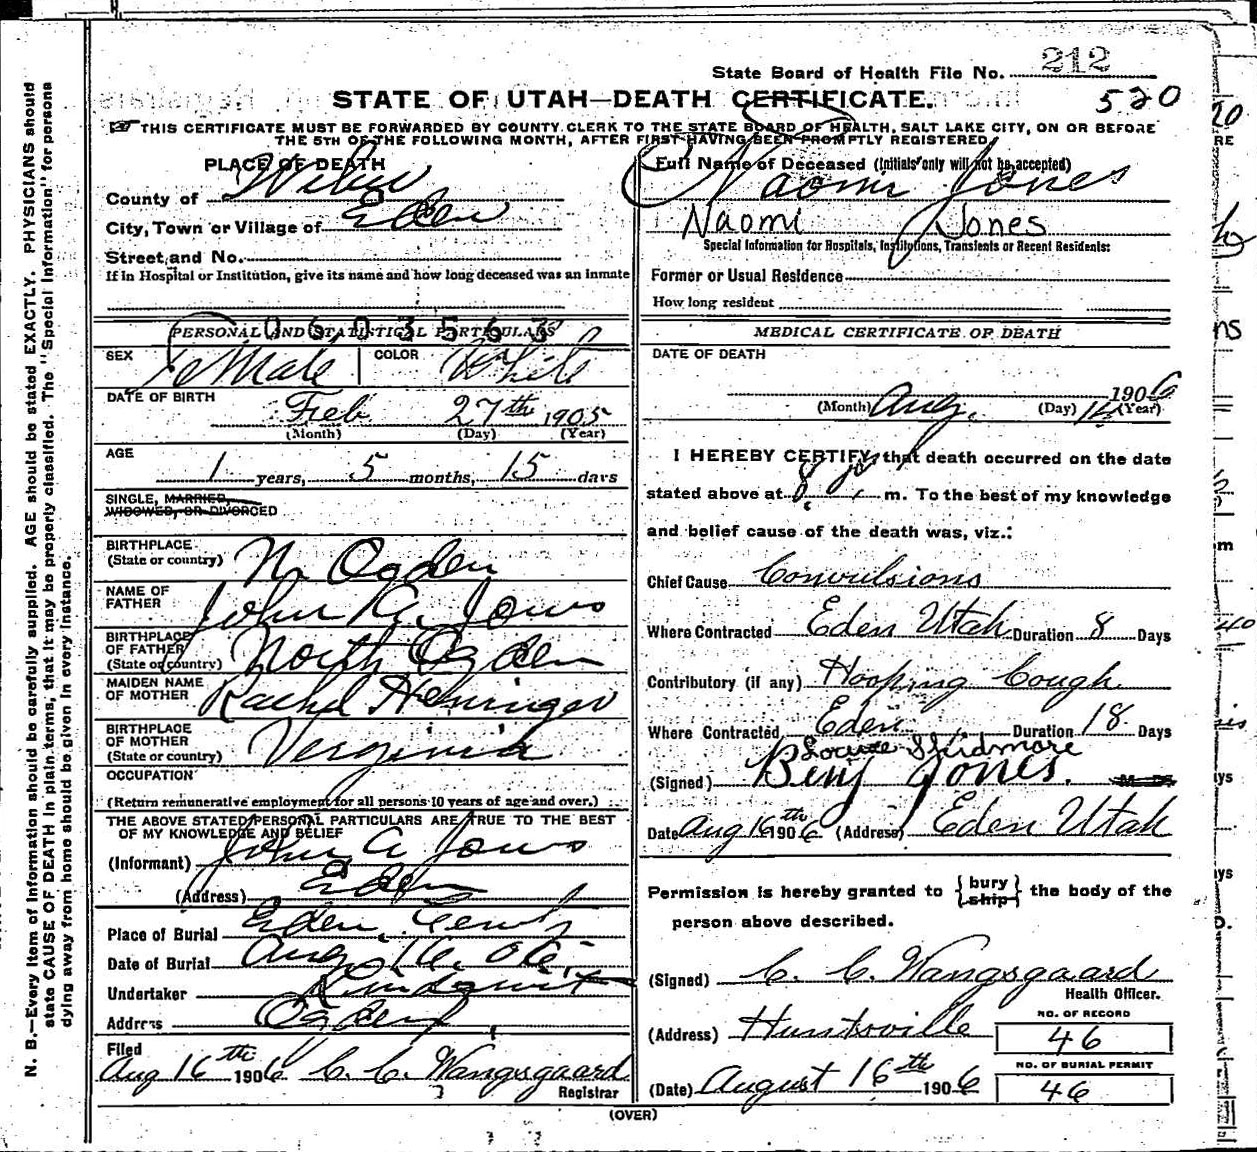 State Board of Health File No. 212
STATE OF UTAH—DEATH CERTIFICATE.
520
THIS CERTIFICATE MUST BE FORWARDED BY COUNTY CLERK TO THE STATE BOARD OF HEALTH, SALT LAKE CITY, ON OR BEFORE
THE 5TH OF THE FOLLOWING MONTH, AFTER FIRST HAVING BEEN PROMPTLY REGISTERED.
PLACE OF DEATH
County of Weber
City, Town or Village of Eden
Street and No.
If in Hospital or Institution, give its name and how long deceased was an inmate
Full Name of Deceased (Initials only will not be accepted)
Naomi Jones
Naomi Jones
Special Information for Hospitals, Institutions, Transients or Recent Residents:
Former or Usual Residence
How long resident
PERSONAL AND STATISTICAL PARTICULARS
0603563
SEX Female COLOR White
DATE OF BIRTH
Feb 27th 1905
(Month) (Day) (Year)
AGE
1 years, 5 months, 15 days
SINGLE, MARRIED,
WIDOWED, OR DIVORCED
BIRTHPLACE
(State or country) N. Ogden
NAME OF
FATHER John A. Jones
BIRTHPLACE
OF FATHER
(State or country) North Ogden
MAIDEN NAME
OF MOTHER Rachel
BIRTHPLACE
OF MOTHER
(State or country) Verginia
OCCUPATION
(Return remunerative employment for all persons 10 years of age and over.)
THE ABOVE STATED PERSONAL PARTICULARS ARE TRUE TO THE BEST
OF MY KNOWLEDGE AND BELIEF
(Informant) John A Jones
(Address) Eden
Place of Burial Eden
Date of Burial Aug 16, 06
Undertaker
Address Ogden
Filed
Aug 16th 1906 C. C. Wangsgaard
Registrar
MEDICAL CERTIFICATE OF DEATH
DATE OF DEATH
1906
(Month) Aug. (Day) (Year)
I HEREBY CERTIFY, that death occurred on the date
stated above at 8 m. To the best of my knowledge
and belief cause of the death was, viz.:
Chief Cause Convulsions
Where Contracted Eden Utah Duration 8 Days
Contributory (if any) Hooping Cough
Where Contracted Eden Duration 18 Days
Skidmore
(Signed) Benj Jones. M. D.
Date Aug 16th 1906 (Address) Eden Utah
Permission is hereby granted to {bury ship} the body of the
person above described.
(Signed) C. C. Wangsgaard
Health Officer.
(Address) Huntsville
NO. OF RECORD
46
(Date) August 16th 1906
NO. OF BURIAL PERMIT
46
(OVER)
N. B.—Every item of information should be carefully supplied. AGE should be stated EXACTLY. PHYSICIANS should
state CAUSE OF DEATH in plain terms, that it may be properly classified. The "Special Information" for persons
dying away from home should be given in every instance.